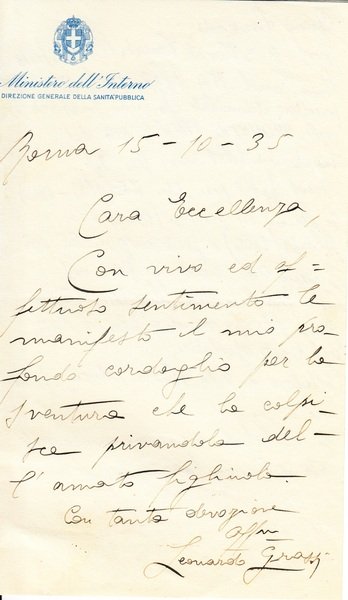 Ministero dell'Interno
DIREZIONE GENERALE DELLA SANITÀ PUBBLICA
Roma 15-10-35
Cara Eccellenza,
Con vivo ed af=
fettuoso sentimento le
manifesto il mio pro
fondo cordoglio per la
sventura che la colpi
sce privandola del-
l'amato figliuolo.
Con tanta devozione
affmo
Leonardo Grassi